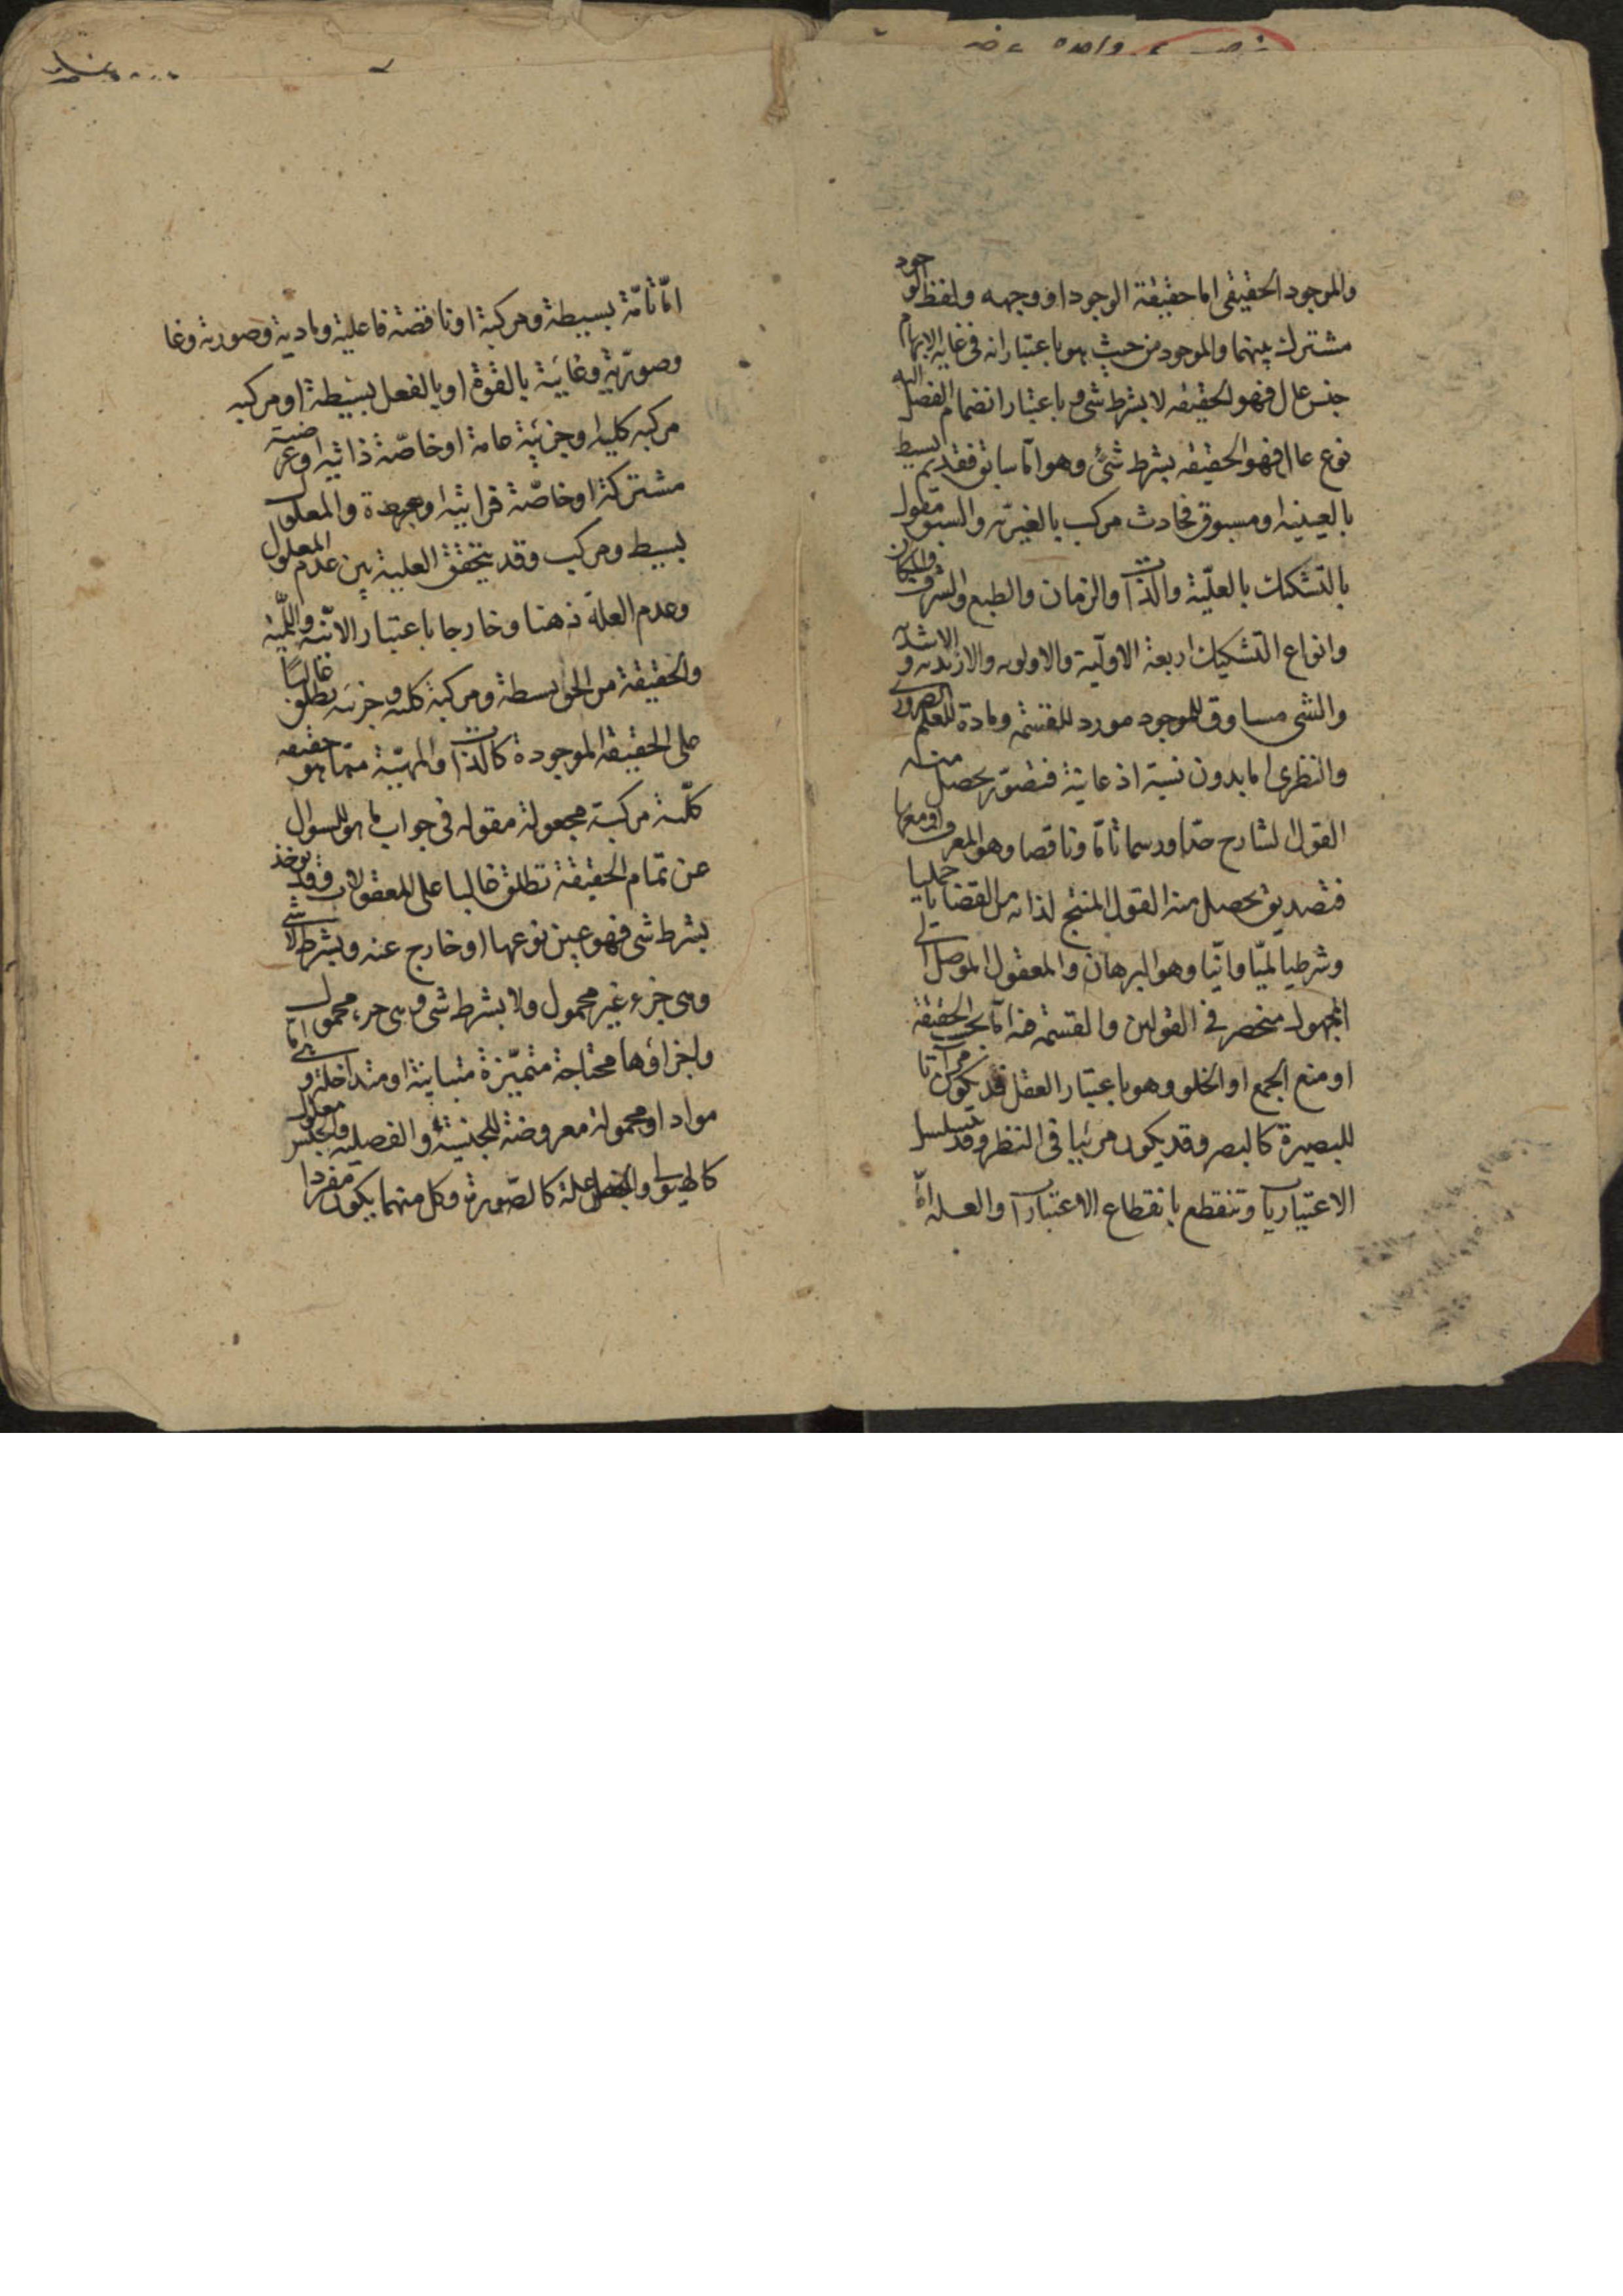 والموجود الحقيقى اما حقيقة الوجود او وجهه ولفظ الوجود
مشترك بينهما والموجود من حيث هو باعتبار انه فى غاية الابهام
جنس عال فهو الحقيقه لا بشرط شى وباعتبار انضمام الفصل اليه
نوع عال فهو الحقيقه بشرط شئ وهو اما سابق فقديم بسيط
بالعينيه او مسبوق فحادث مركب بالغيريه والسبق مقول
بالتشكيك بالعلّية والذات والزمان والطبع والشرف والمكان
وانواع التشكيك اربعة الاوليّة والاولويه والازيديه والاشديه
والشى مساوق للموجود مورد للقسمة ومادة للعلم الضرورى
والنظرى اما بدون نسبة اذعانية فتصوّر يحصل منه
القول الشارح حدّا ورسما تامّا وناقصا وهو المعرف او معها
فتصديق يحصل منه القول المنتج لذاته من القضايا حمليا
وشرطيا لميّا وانيّا وهو البرهان والمعقول الموصل الى
المجهول منحصر فى القولين والقسمة هذه اما بحسب الحقيقة
او منع الجمع او الخلو وهو باعتبار العقل قد يكون مرآتا
للبصيرة كالبصر وقد يكون مرئيا فى النظر وقد يتسلسل
الاعتباريات وتنقطع بانقطاع الاعتبارات والعله امّا
امّا تامّة بسيطة ومركبة او ناقصة فاعلية ومادية وصورية وغا
وصوريّة وغائية بالقوة او بالفعل بسيطة او مركبه
مركبه كلية او جزئية عامة او خاصّة ذاتيه او عرضية
مشتركة او خاصّة قرابيه او بعيدة والمعلول
بسيط ومركب وقد يتحقق العلية بين عدم المعلول
وعدم العلة ذهنا وخارجا باعتبار الانّيه واللّميّه
والحقيقة من الحق بسيطة ومركبة كلية وجزئيه تطلق غالبًا
على الحقيقة الموجودة كالذات والمهيّة ممّا هو حقيقه
كلّية مركبة مجعولة مقوله فى جواب ما هو للسوال
عن تمام الحقيقة تطلق غالبا على المعقولات وقد توخذ
بشرط شى فهو عين نوعها او خارج عنه وبشرط لا شى
وهى جزء غير محمول ولا بشرط شى وهى جزء محمول
واجزاؤها محتاجة متميّزة متباينة او متداخلة وهى امّا
مواد او محمولة معروضة للجنسية والفصلية والجنس معلول
كالهيولى والفصل علة كالصّورة وكل منهما يكون مفردا